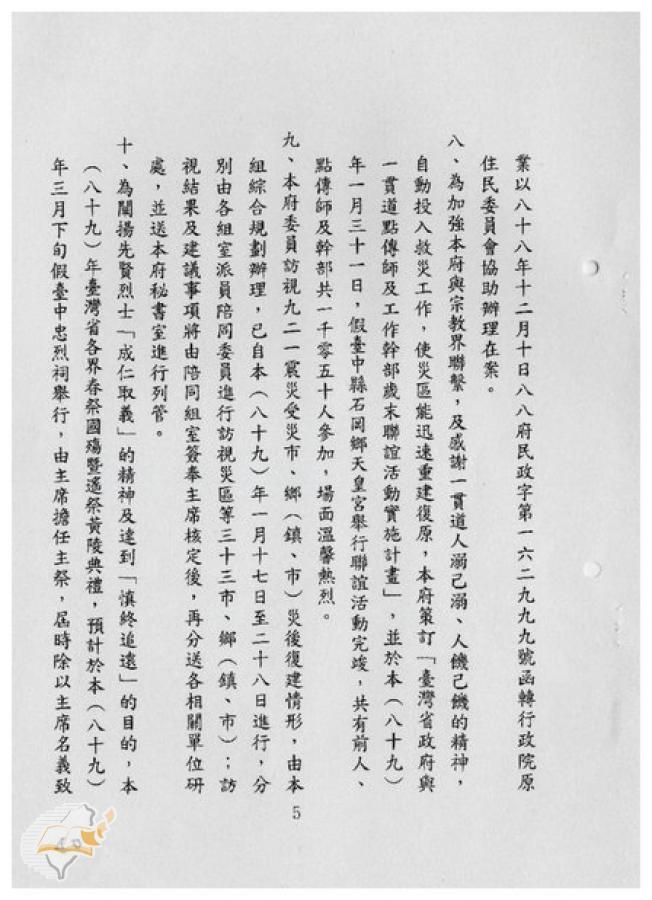 業以八十八年十二月十日八八府民政字第一六二九九九號函轉行政院原
住民委員會協助辦理在案。
八、為加強本府與宗教界聯繫，及感謝一貫道人溺己溺、人饑己饑的精神，
自動投入救災工作，使災區能迅速重建復原，本府策訂「臺灣省政府與
一貫道點傳師及工作幹部歲末聯誼活動實施計畫」，並於本（八十九）
年一月三十一日，假臺中縣石岡鄉天皇宮舉行聯誼活動完竣，共有前人、
點傳師及幹部共一千零五十人參加，場面溫馨熱烈。
九、本府委員訪視九二一震災受災市、鄉（鎮、市）災後復建情形，由本
組綜合規劃辦理，已自本（八十九）年一月十七日至二十八日進行，分
別由各組室派員陪同委員進行訪視災區等三十三市、鄉（鎮、市）；訪
視結果及建議事項將由陪同組室簽奉主席核定後，再分送各相關單位研
處，並送本府秘書室進行列管。
十、為闡揚先賢烈士「成仁取義」的精神及達到「慎終追遠」的目的，本
（八十九）年臺灣省各界春祭國殤暨遙祭黃陵典禮，預計於本（八十九）
年三月下旬假臺中忠烈祠舉行，由主席擔任主祭，屆時除以主席名義致
5